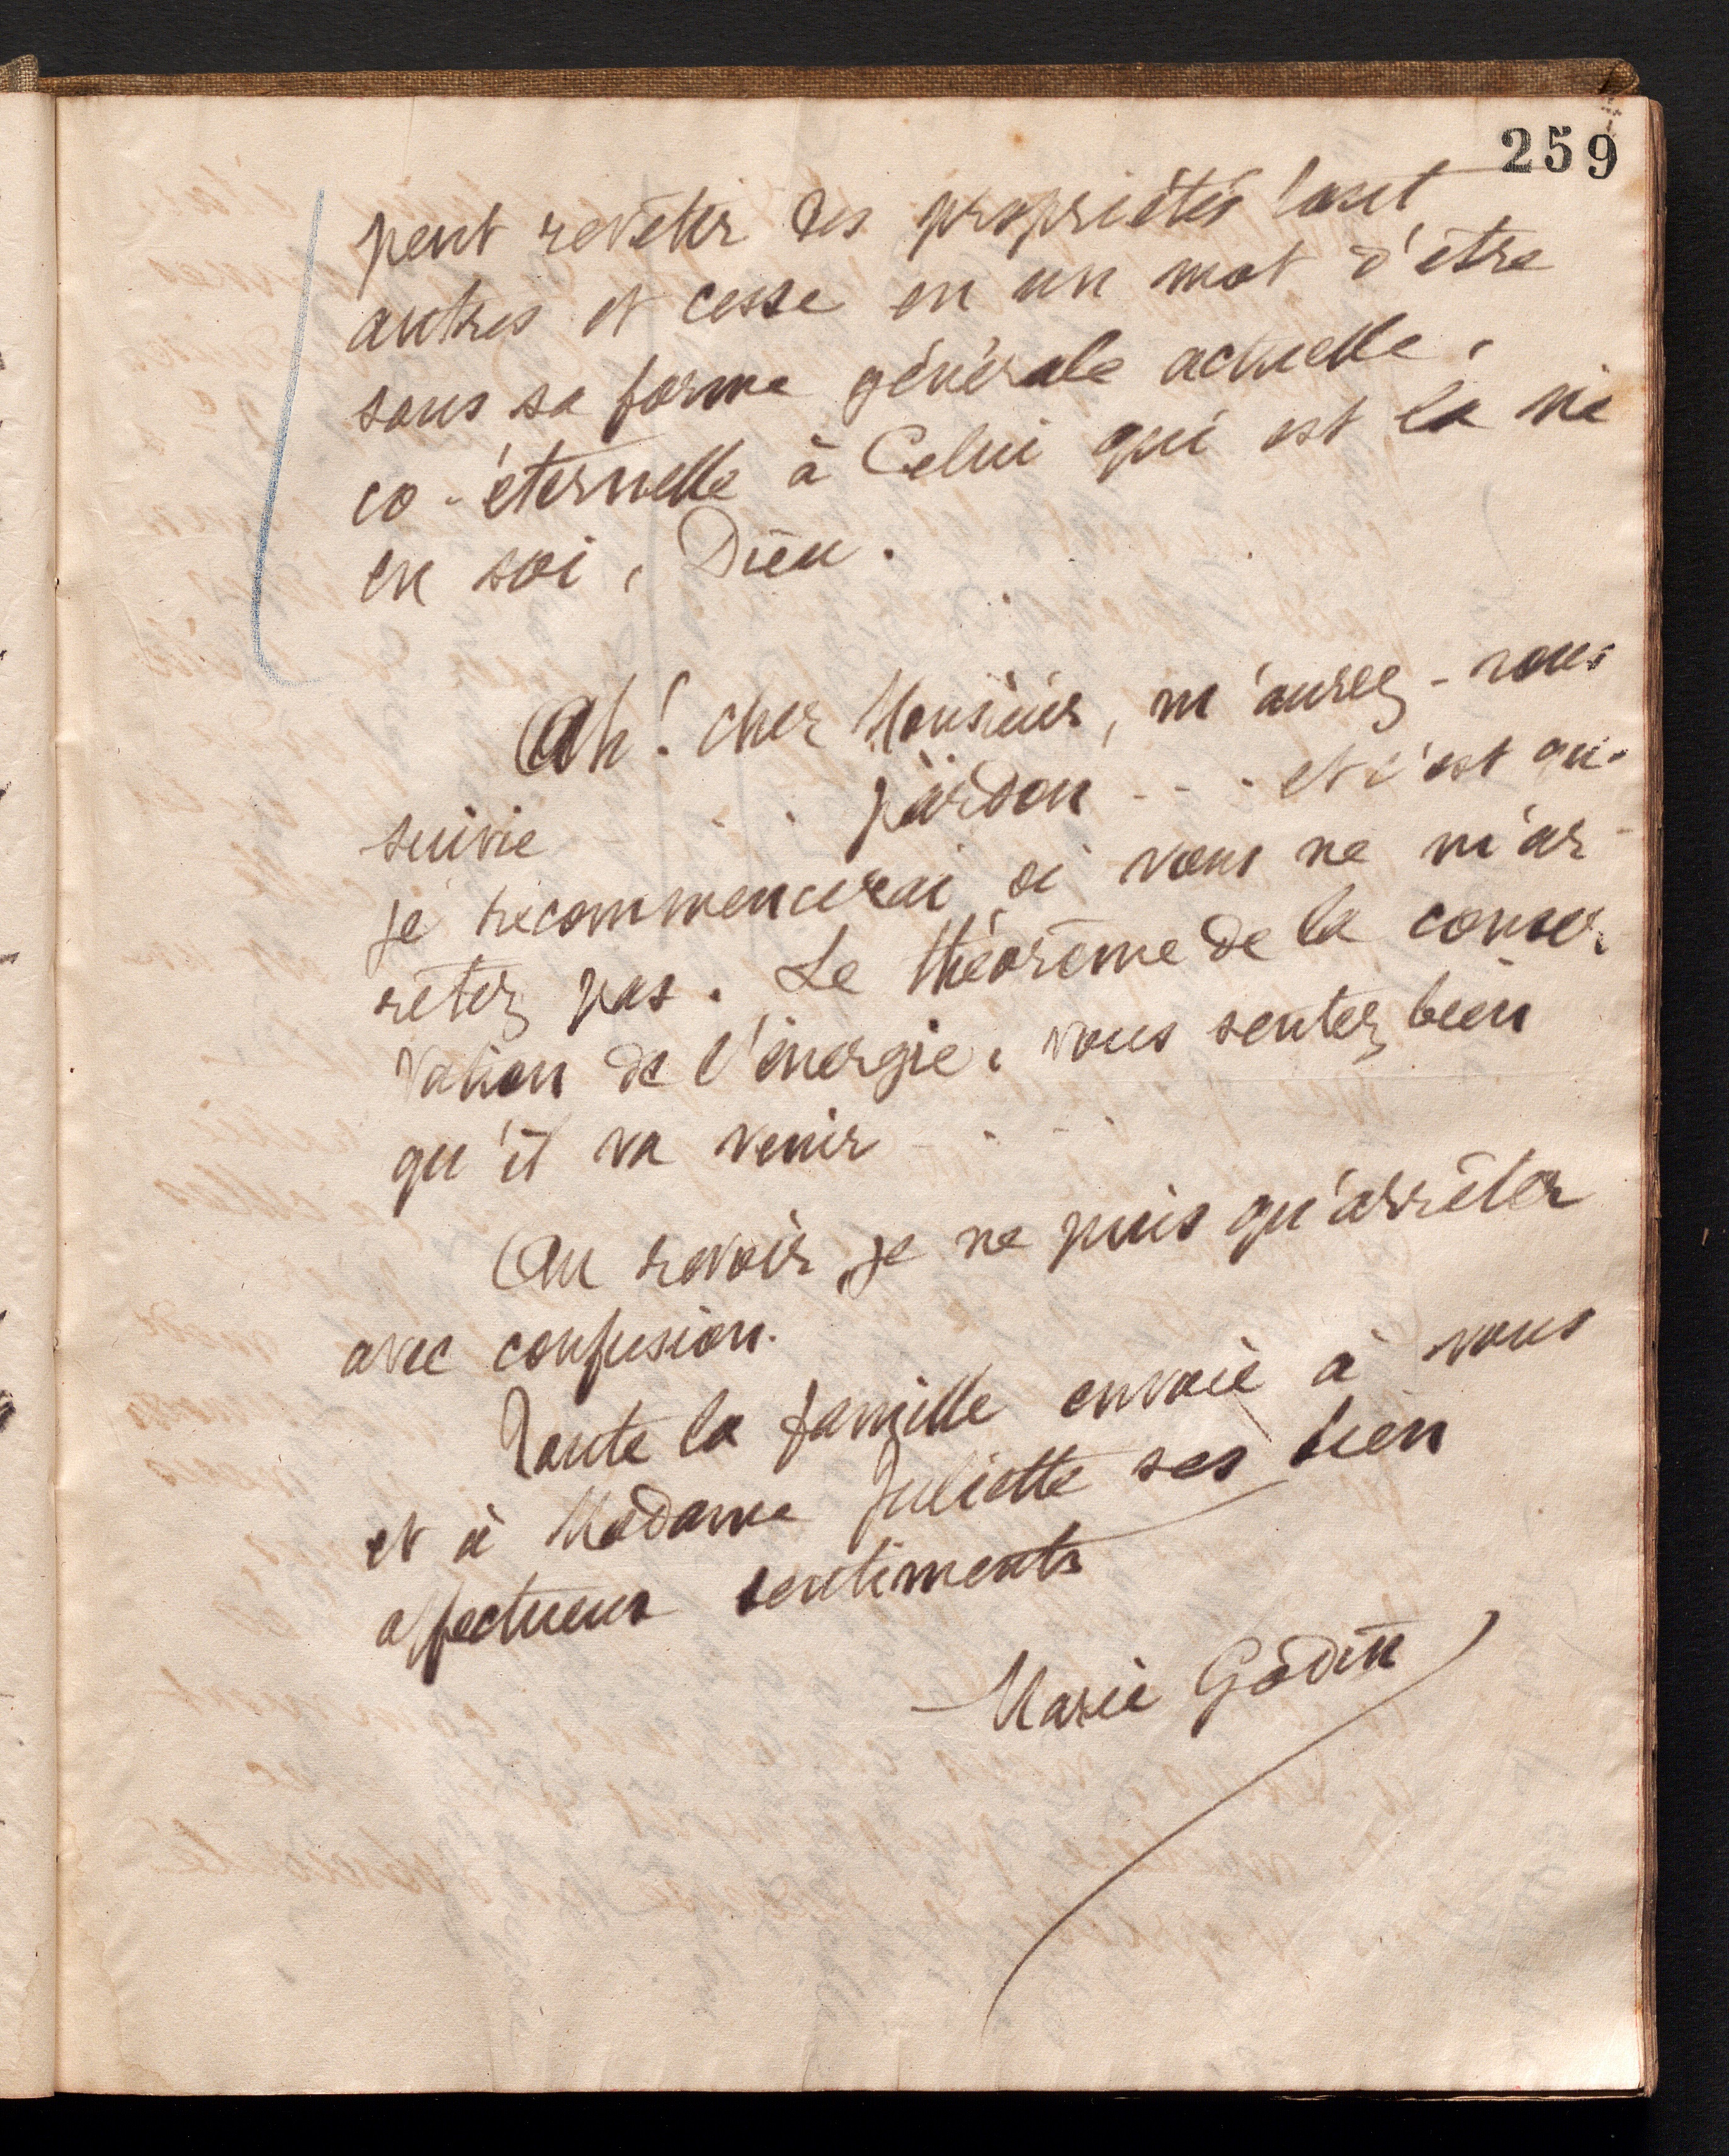 259
peut revêtir des propriétés tout
autres et cesse en un mot d'être
sous sa forme générale actuelle,
co-éternelle à Celui qui est la vie
en soi, Dieu.
Ah! cher Monsieur, m'aurez-vous
suivie . . . pardon . . . et c'est que
je recommencerai si vous ne m'ar-
rêtez pas. Le théorème de la conser-
vation de l'énergie, vous sentez bien
qu'il va venir . . .
Au revoir, je ne puis qu'arrêter
avec confusion.
Toute la famille envoie à vous
et à Madame Juliette ses bien
affectueux sentiments
Marie Godin